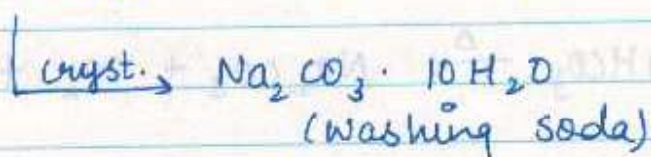 cryst. → Na₂CO₃ · 10H₂O
(washing soda)